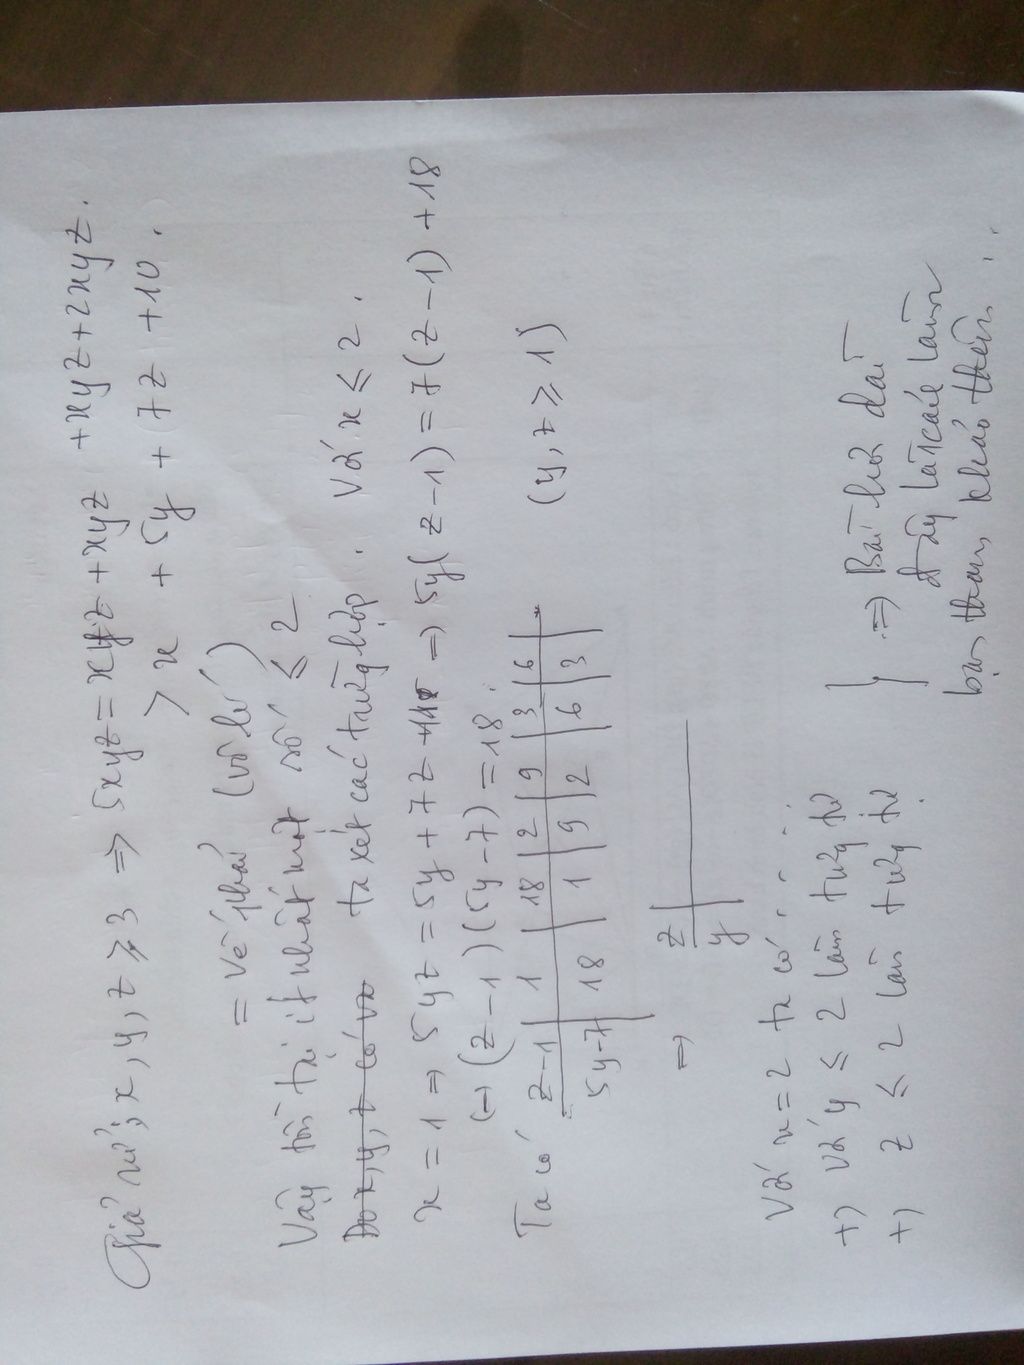 Giả sử: x, y, z ≥ 3 ⇒ 5xyz = xyz + xyz + xyz + 2xyz.
> x + 5y + 7z + 10.
= Vế phải (vô lí)
Vậy tồn tại ít nhất một số ≤ 2
ta xét các trường hợp. Với x ≤ 2.
x = 1 ⇒ 5yz = 5y + 7z + 11 ⇒ 5y(z − 1) = 7(z − 1) + 18
(↔) (z − 1)(5y − 7) = 18. (y, z ≥ 1)
Ta có z − 1 | 1 | 18 | 2 | 9 | 3 | 6
5y − 7 | 18 | 1 | 9 | 2 | 6 | 3
⇒ z
y
Với x = 2 ta có
+) Với y ≤ 2 làm tương tự
+) z ≤ 2 làm tương tự.
⇒ Bài hơi dài
đây là cách làm
bạn tham khảo thêm